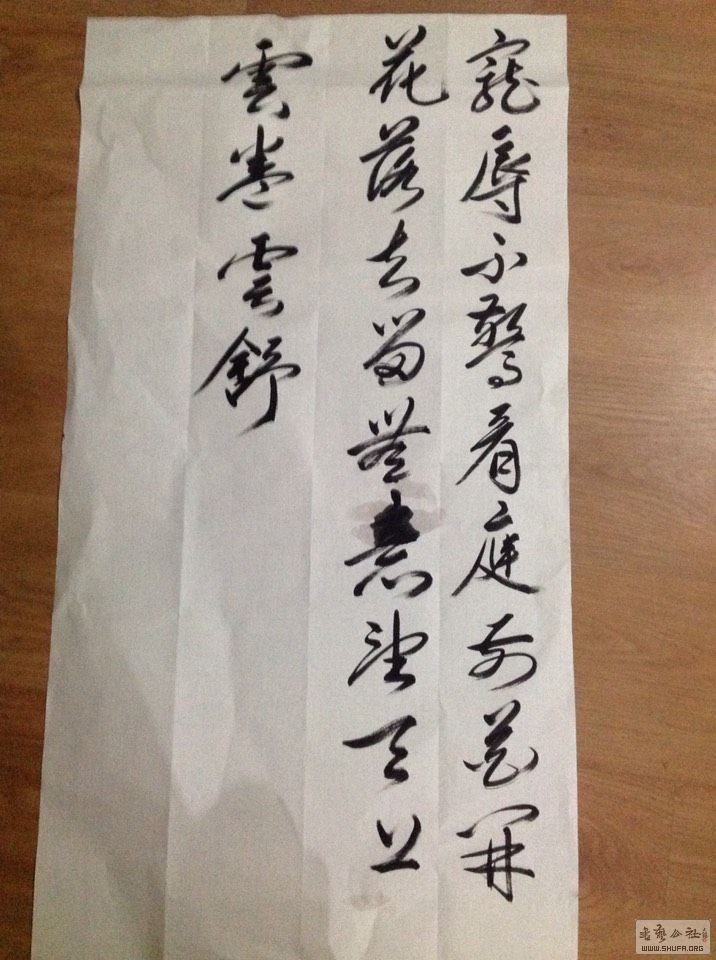 寵辱不驚看庭前花開
花落去留無意望天上
雲卷雲舒
書藝公社
WWW.SHUFA.ORG